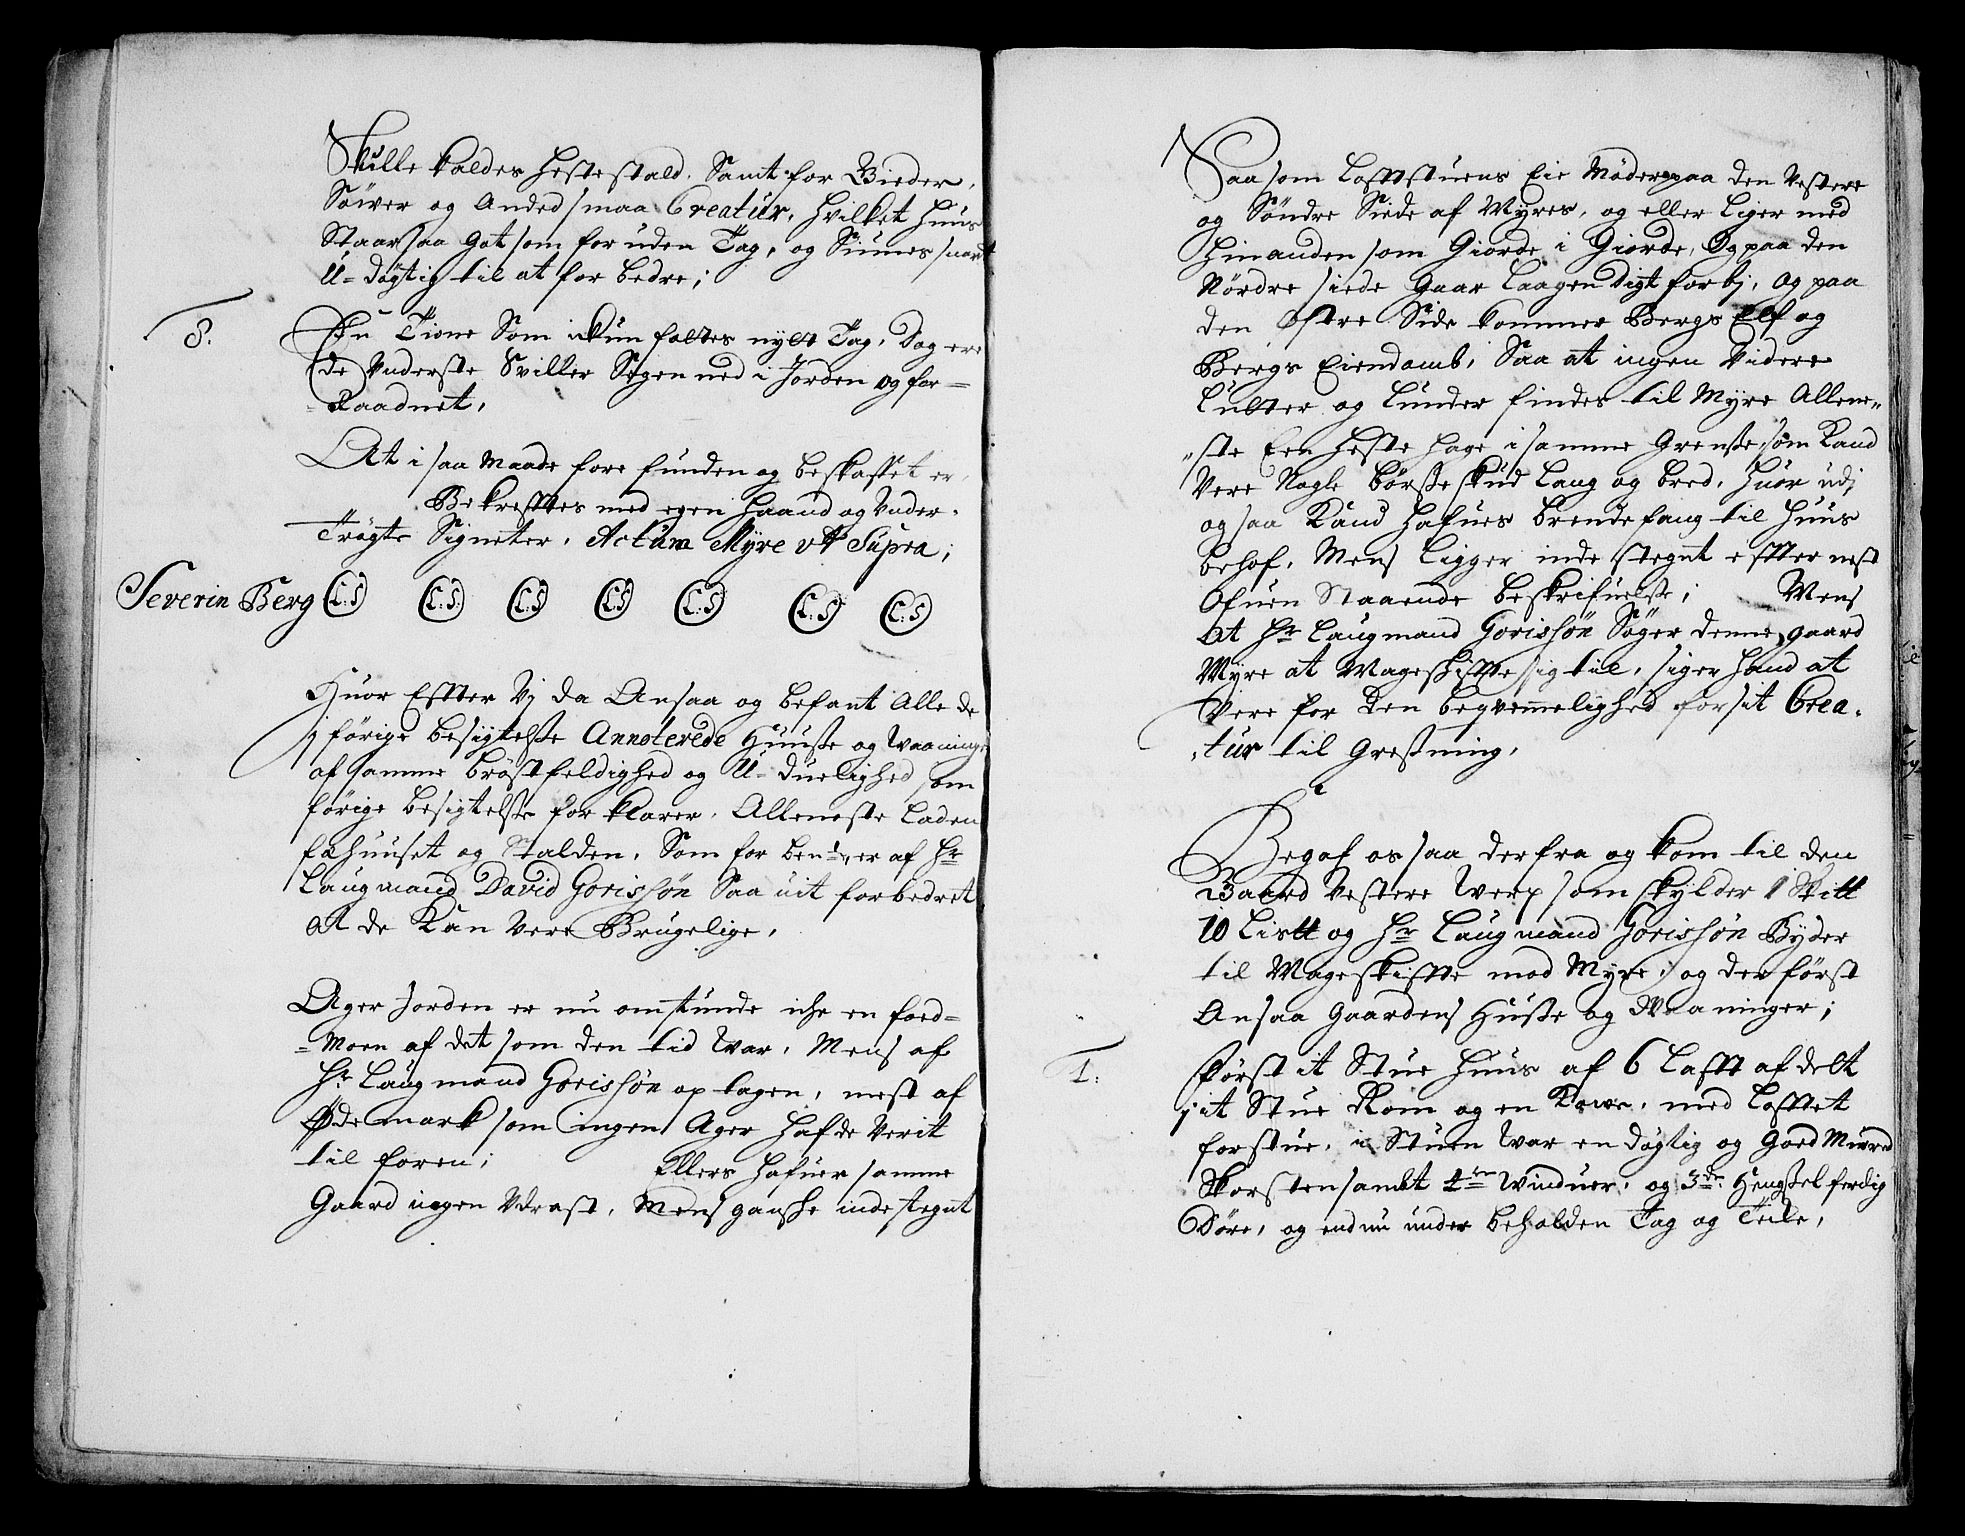 Skulle kaldes hestestald. Samt for Bieder,
Söwer og Anded smaa Creatur, hvilket huus
Staar saa Got som for uden Tag, og Siunes snart
U-dögtig til at for bedre;
8. En Tione Som iKun fattes nÿtt Tag, Dog ere
de Underste Sviller Sigen ned i Jorden og for=
=Raadnet,
At i saa Maade fore funden og beskaffet er,
Bekrefftes med egen Haand og Under-
Trögte Signeter, Actum Mÿre ut Supra;
Severin Berg L:S L:S: L:S L:S L:S L:S L:S
Huor Effter Vj da Ansaa og befant Alle de
j förige besigtelsse Annoterede Huusse og Waaninge
af samme bröstfeldighed og U-duelighed som
förige besigtelsse for klarer, Alleneste Laden
fæhuuset og Stalden, Som for ben:te er af Hr
Laugmand David Gorissön Saa uit forbedret
At de Kan Vere Brugelige,
Ager Jorden er nu omstunde iche en ford=
=Moen af det som den tid War, Mens af
Hr Laugmand Gorissön op tagen, mest af
Öde mark som ingen Ager Hafde Verit
til foren; Ellers Hafuer samme
Gaard ingen Udrast, Mens gansche indestegnt
Saasom Lofftstuens Eie Möder paa den Vestere
og Söndre Siede af Mÿres, og eller Liger med
Hinanden som Giorde i Giorde, Og paa den
Nördre siede Gaar Laagen digt forbj, og paa
den Östre Side kommer Bergs Elf og
Bergs Eiendomb, Saa at ingen Videre
Lutter og Lunder findes til Mÿre Allene„
„ste Een Heste Hage i samme Grentse, som Kand
Vere Nogle börsse skud Lang og bred, Huor udj
og saa Kand Hafues brendefang til Huus
behof, Mens Ligger inde stegnt effter nest
Ofuen Staaende beskrifuelse; Mens
At Hr Laugmand Gorissön Söger denne gaard
Mÿre at Mageskiffte sig til, siger Hand at
Vere for den beqvemmelighed for sit Crea-
-tur til Gresning,
Begaf os saa derfra og kom til den
Gaard Vestere Werp som skÿlder 1 Skitt
10 Listt og Hr Laugmand Gorissön Bÿder
til Mageskiffte mod Mÿre, og der först
Ansaa Gaardens Husse og Waaninger;
1. Först it Stue Huus af 6 Lafft afdelt
j it Stue Rom og en Kowe, med Lofftet
forstue, i Stuen War en dögtig og Goed Mured
Skorsten samt 4re Winduer, og 3de Hengsel ferdig
Döre, og endnu under beholden Tag og Teile,